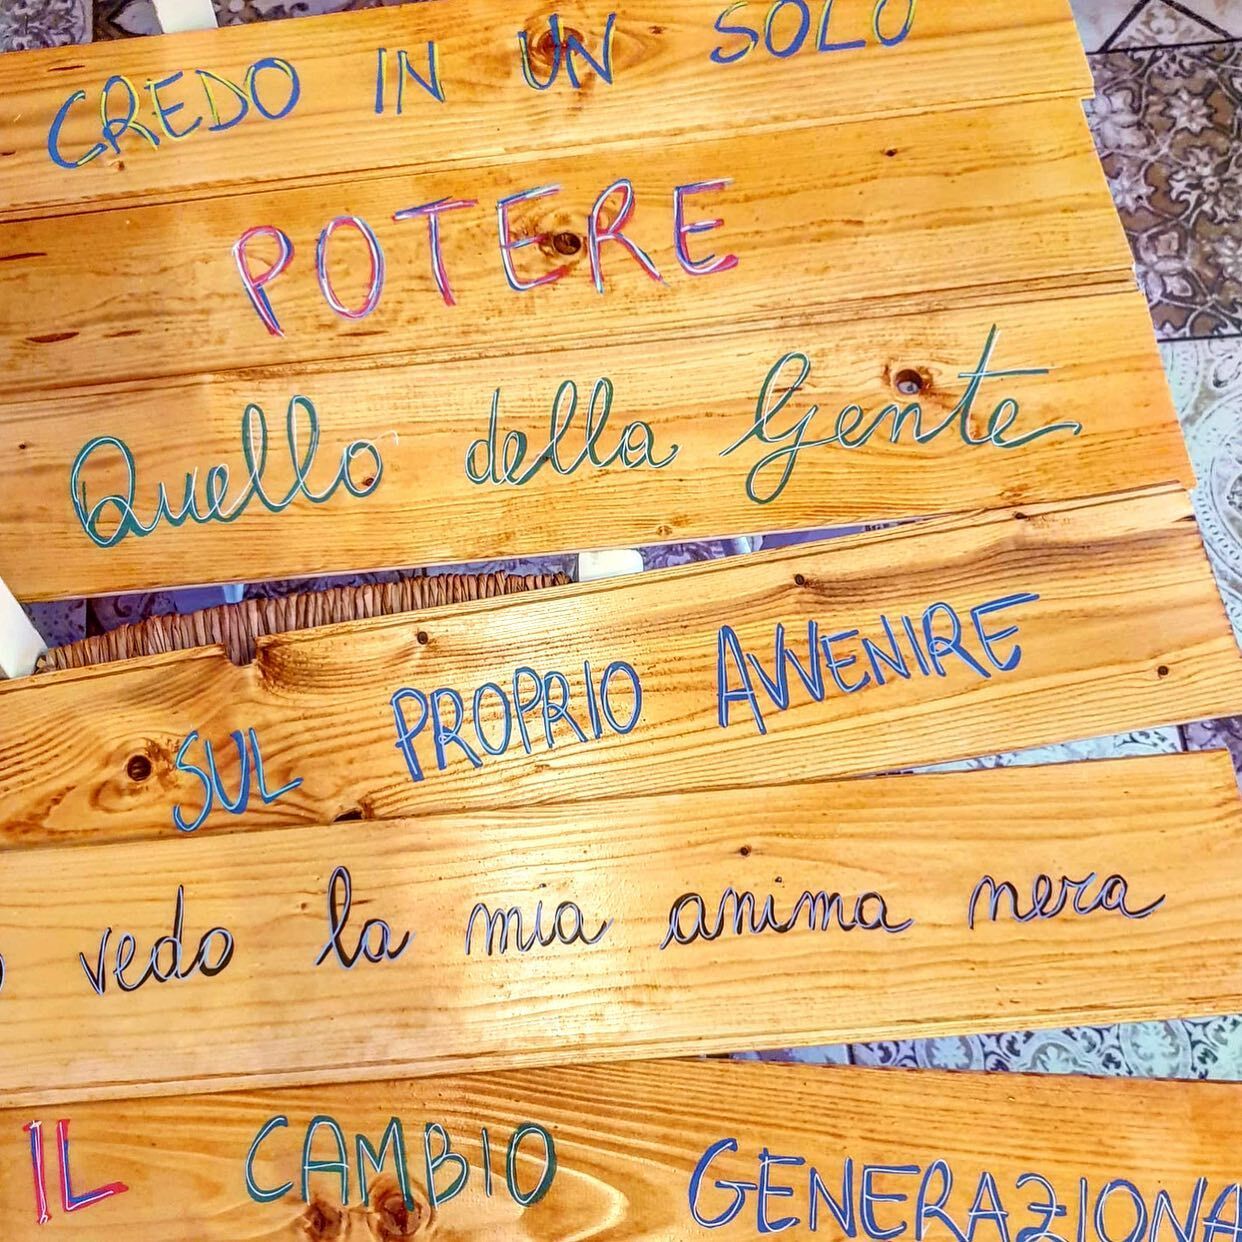 CREDO IN UN SOLO
POTERE
Quello della Gente
SUL PROPRIO AVVENIRE
vedo la mia anima nera
IL CAMBIO GENERAZIONA